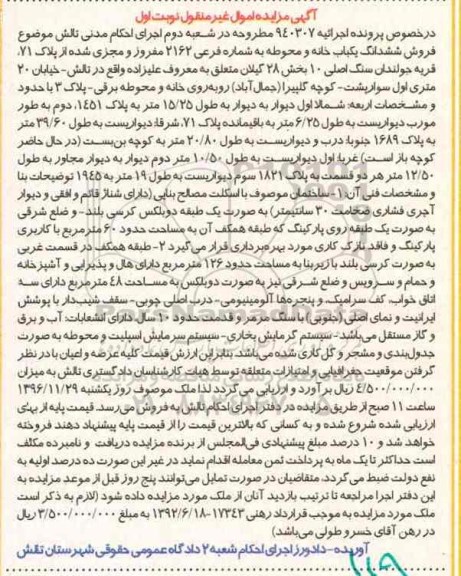 آگهی مزایده اموال غیر منقول نوبت اول
درخصوص پرونده اجرائیه ۹۴۰۳۰۷ مطروحه در شعبه دوم اجرای احکام مدنی تالش موضوع
فروش ششدانگ یکباب خانه و محوطه به شماره فرعی ۲۱۶۲ مفروز و مجزی شده از پلاک ۷۱،
قریه جولندان سنگ اصلی ۱۰ بخش ۲۸ گیلان متعلق به معروف علیزاده واقع در تالش- خیابان ۲۰
متری اول سواریشت- کوچه گلپیرا (جمال آباد) روبه‌روی خانه و محوطه برقی- پلاک ۳ با حدود
و مشخصات اربعه: شمالا اول دیوار به دیوار به طول ۱۵/۲۵ متر به پلاک ۱۴۵۱، دوم به طور
مورب دیواریست به طول ۶/۲۵ متر به باقیمانده پلاک ۷۱، شرقا: دیواریست به طول ۳۹/۶۰ متر
به پلاک ۱۶۸۹ جنوبا: درب و دیواریست به طول ۲۰/۸۰ متر به کوچه بن‌بست (در حال حاضر
کوچه باز است) غربا: اول دیواریست به طول ۱۰/۵۰ متر دوم دیوار به دیوار مجاور به طول
۱۲/۵۰ متر هر دو قسمت به پلاک ۱۸۲۱ سوم دیواریست به طول ۱۹ متر به ۱۹۴۵ توضیحات بنا
و مشخصات فنی آن: ۱- ساختمان موصوف با اسکلت مصالح بنایی (دارای شناژ قائم و افقی و دیوار
آجری فشاری ضخامت ۳۰ سانتیمتر) به صورت یک طبقه دوبلکس کرسی بلند- و ضلع شرقی
به صورت یک طبقه روی پارکینگ که طبقه همکف آن به مساحت حدود ۶۰ مترمربع با کاربری
پارکینگ و فاقد نازک کاری مورد بهره‌برداری قرار می‌گیرد ۲- طبقه همکف در قسمت غربی
به صورت کرسی بلند با زیربنا به مساحت حدود ۱۲۶ مترمربع دارای هال و پذیرایی و آشپزخانه
و حمام و سرویس و ضلع شرقی نیز به صورت دوبلکس به مساحت ۴۸ مترمربع دارای سه
اتاق خواب، کف سرامیک، و پنجره‌ها آلومینیومی- درب اصلی چوبی- سقف شیب‌دار با پوشش
ایرانیت و نمای اصلی (جنوبی) با سنگ مرمر و قدمت حدود ۱۰ سال دارای انشعابات: آب و برق
و گاز مستقل می‌باشد- سیستم گرمایش بخاری- سیستم سرمایش اسپلیت و محوطه به صورت
جدول‌بندی و مشجر و گل کاری شده می‌باشد. بنابراین ارزش قیمت کلیه عرصه و اعیان با در نظر
گرفتن موقعیت جغرافیایی و امتیازات متعلقه توسط هیات کارشناسان دادگستری تالش به میزان
۴/۵۰۰/۰۰۰/۰۰۰ ریال برآورد و ارزیابی می‌گردد لذا ملک موصوف روز یکشنبه ۱۳۹۶/۱۱/۲۹
ساعت ۱۱ صبح از طریق مزایده در دفتر اجرای احکام تالش به فروش می‌رسد. قیمت پایه از بهای
ارزیابی شده شروع شده و به کسانی که بالاترین قیمت را از قیمت پایه پیشنهاد دهند فروخته
خواهد شد و ۱۰ درصد مبلغ پیشنهادی فی‌المجلس از برنده مزایده دریافت و نامبرده مکلف
است حداکثر تا یک ماه به پرداخت ثمن معامله اقدام نماید در غیر این صورت ده درصد اولیه به
نفع دولت ضبط می‌گردد. متقاضیان در صورت تمایل می‌توانند پنج روز قبل از موعد مزایده به
این دفتر اجرا مراجعه تا ترتیب بازدید آنان از ملک مورد مزایده داده شود (لازم به ذکر است
ملک مورد مزایده به موجب قرارداد رهنی ۱۷۳۴۳-۱۳۹۲/۶/۱۸ به مبلغ ۳/۵۰۰/۰۰۰/۰۰۰ ریال
در رهن آقای خسرو طولی می‌باشد)
آوریده- دادورز اجرای احکام شعبه ۲ دادگاه عمومی حقوقی شهرستان تقش